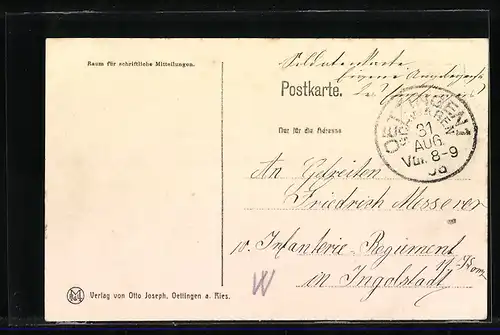 Raum für schriftliche Mitteilungen.
Soldatenkarte
Eigene Angelegenh.
des Empfängers
Postkarte.
Nur für die Adresse
OETTINGEN
SCHWABEN
31
AUG.
Vor. 8-9
08
An Gefreiten
Friedrich Messerer
10. Infanterie-Regiment
in Ingolstadt
W
Verlag von Otto Joseph, Oettingen a. Ries.